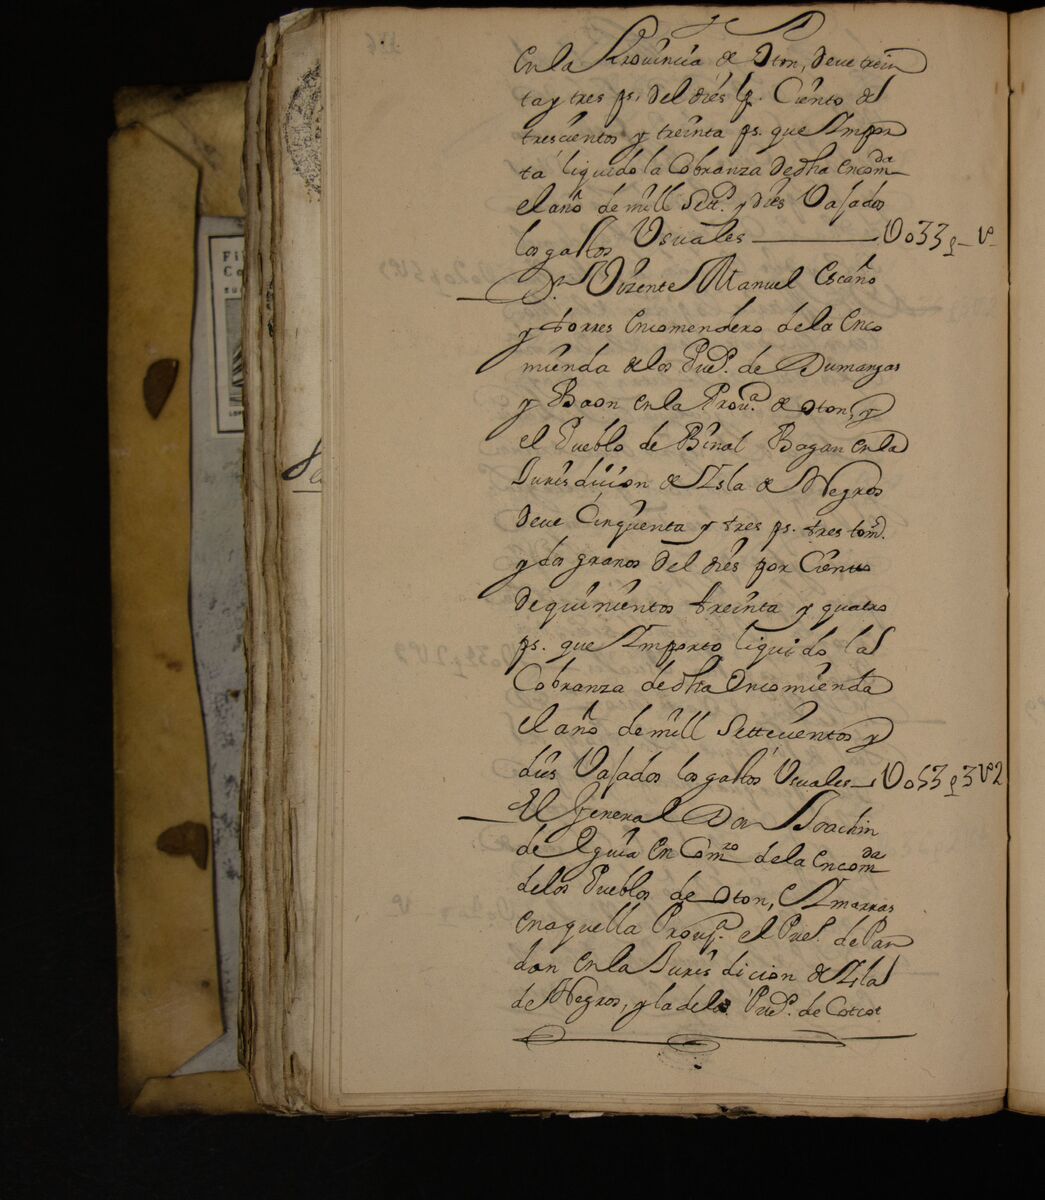 en la Provincia de Oton, deve trein
ta y tres ps. del diés p. Ciento de
trescientos y treinta ps. que Impor
ta liquido la Cobranza de dha encomda
el año de mill Sett.s y diés Vajados
los gastos Vsuales — U033p — U
Dn. Vizente Manuel Escaño
y torres encomendero de la enco
mienda de los Pueb.s de Dumangas
y Baon en la Prova. de Oton, y
el Pueblo de Binal Bagan en la
Jurisdición de Isla de Negros
deve Cinquenta y tres ps. tres tom.s
y dos granos del diés por Ciento
de quinientos treinta y quatro
ps. que Importo liquido la
Cobranza de dha Encomienda
el año de mill Settecientos y
diés Vajados los gastos Vsuales — U053p3U2
El General Don Joachin
de Eguia en Comro de la encomda
de los Pueblos de Oton, Smarras
en aquella Prov.a el Pue.o de Pan
dan en la Jurisdicion de Isla
de Negros, y la de los Pue.s de Cotcot
Fi
Co
su
LOP